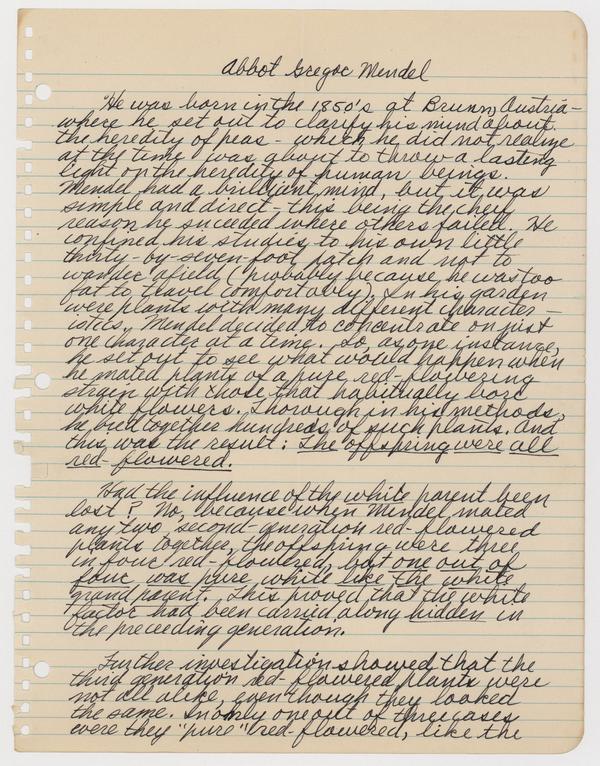 Abbot Gregor Mendel
"He was born in the 1850's at Brunn, Austria -
where he set out to clarify his mind about
the heredity of peas - which he did not realize
at the time was about to throw a lasting
light on the heredity of human beings.
Mendel had a brilliant mind, but it was
simple and direct - this being the chief
reason he succeded where others failed. He
confined his studies to his own little
thirty-by-seven-foot patch and not to
wander afield (probably because he was too
fat to travel comfortably). In his garden
were plants with many different character-
istics. Mendel decided to concentrate on just
one character at a time. So, as one instance,
he set out to see what would happen when
he mated plants of a pure red-flowering
strain with those that habitually bore
white flowers. Thorough in his methods,
he bred together hundreds of such plants. And
this was the result: The offspring were all
red-flowered.
Had the influence of the white parent been
lost? No, because when Mendel mated
any two second-generation red-flowered
plants together, the offspring were three
in four red-flowered, but one out of
four was pure white like the white
grand parent. This proved that the white
factor had been carried along hidden in
the preceeding generation.
Further investigation showed that the
third generation red-flowered plants were
not all alike, even though they looked
the same. In only one out of three cases
were they "pure" red-flowered, like the